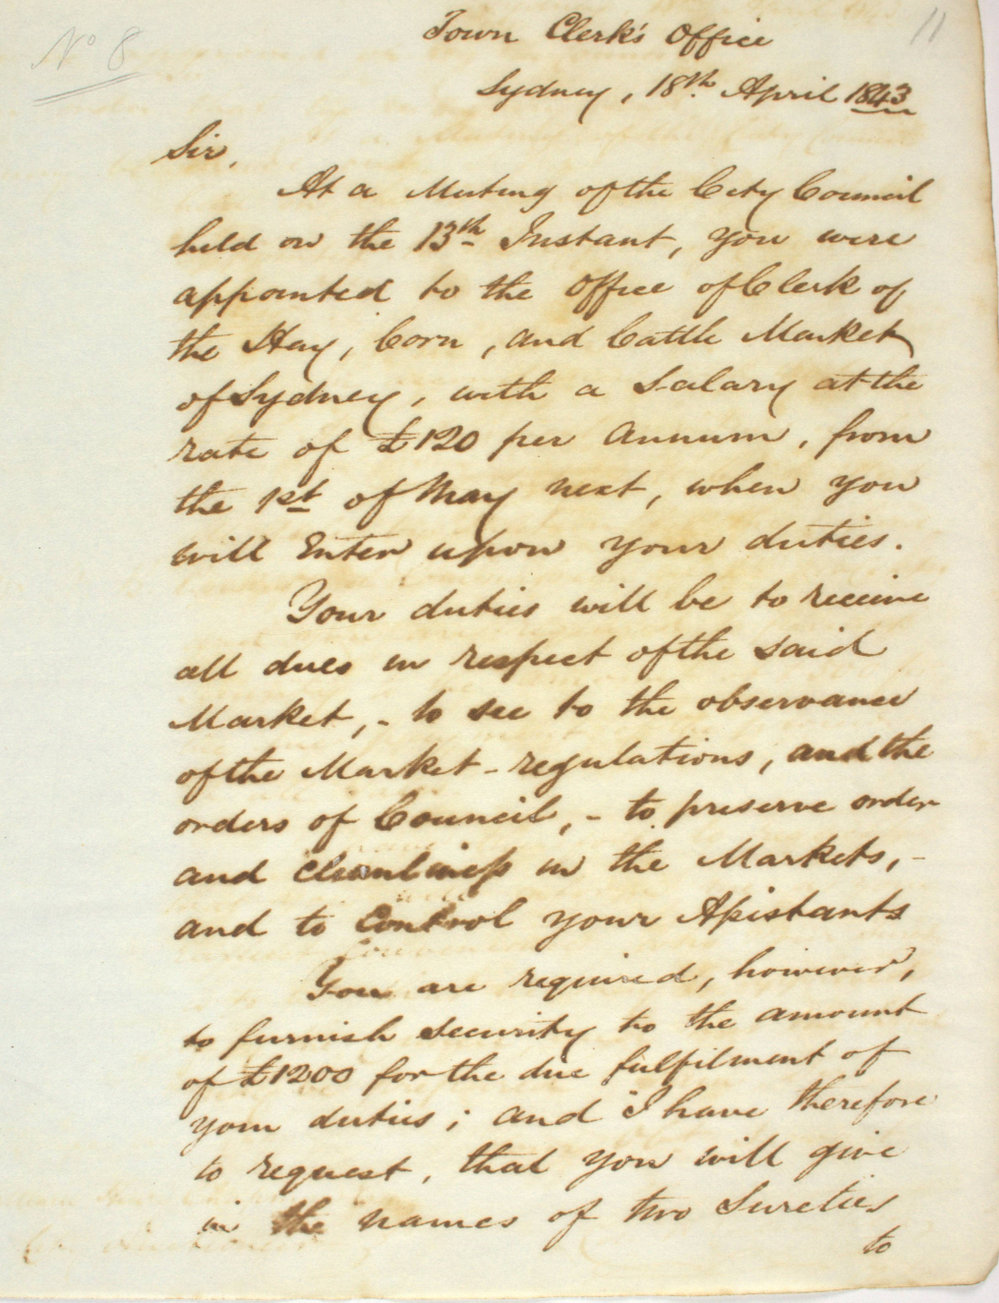 No 8
11
Town Clerk's Office
Sydney, 18th. April 1843
Sir,
At a Meeting of the City Council
held on the 13th Instant, you were
appointed to the Office of Clerk of
the Hay, Corn, and Cattle Market
of Sydney, with a Salary at the
rate of £120 per Annum, from
the 1st of May next, when you
will Enter upon your duties.
Your duties will be to receive
all dues in respect of the said
Market, - to see to the observance
of the Market - regulations, and the
orders of Council, - to preserve order
and Cleanliness in the Markets, -
and to Control your Assistants
You are required, however,
to furnish security to the amount
of £1200 for the due fulfilment of
your duties; and I have therefore
to request, that you will give
in the names of two Sureties
to